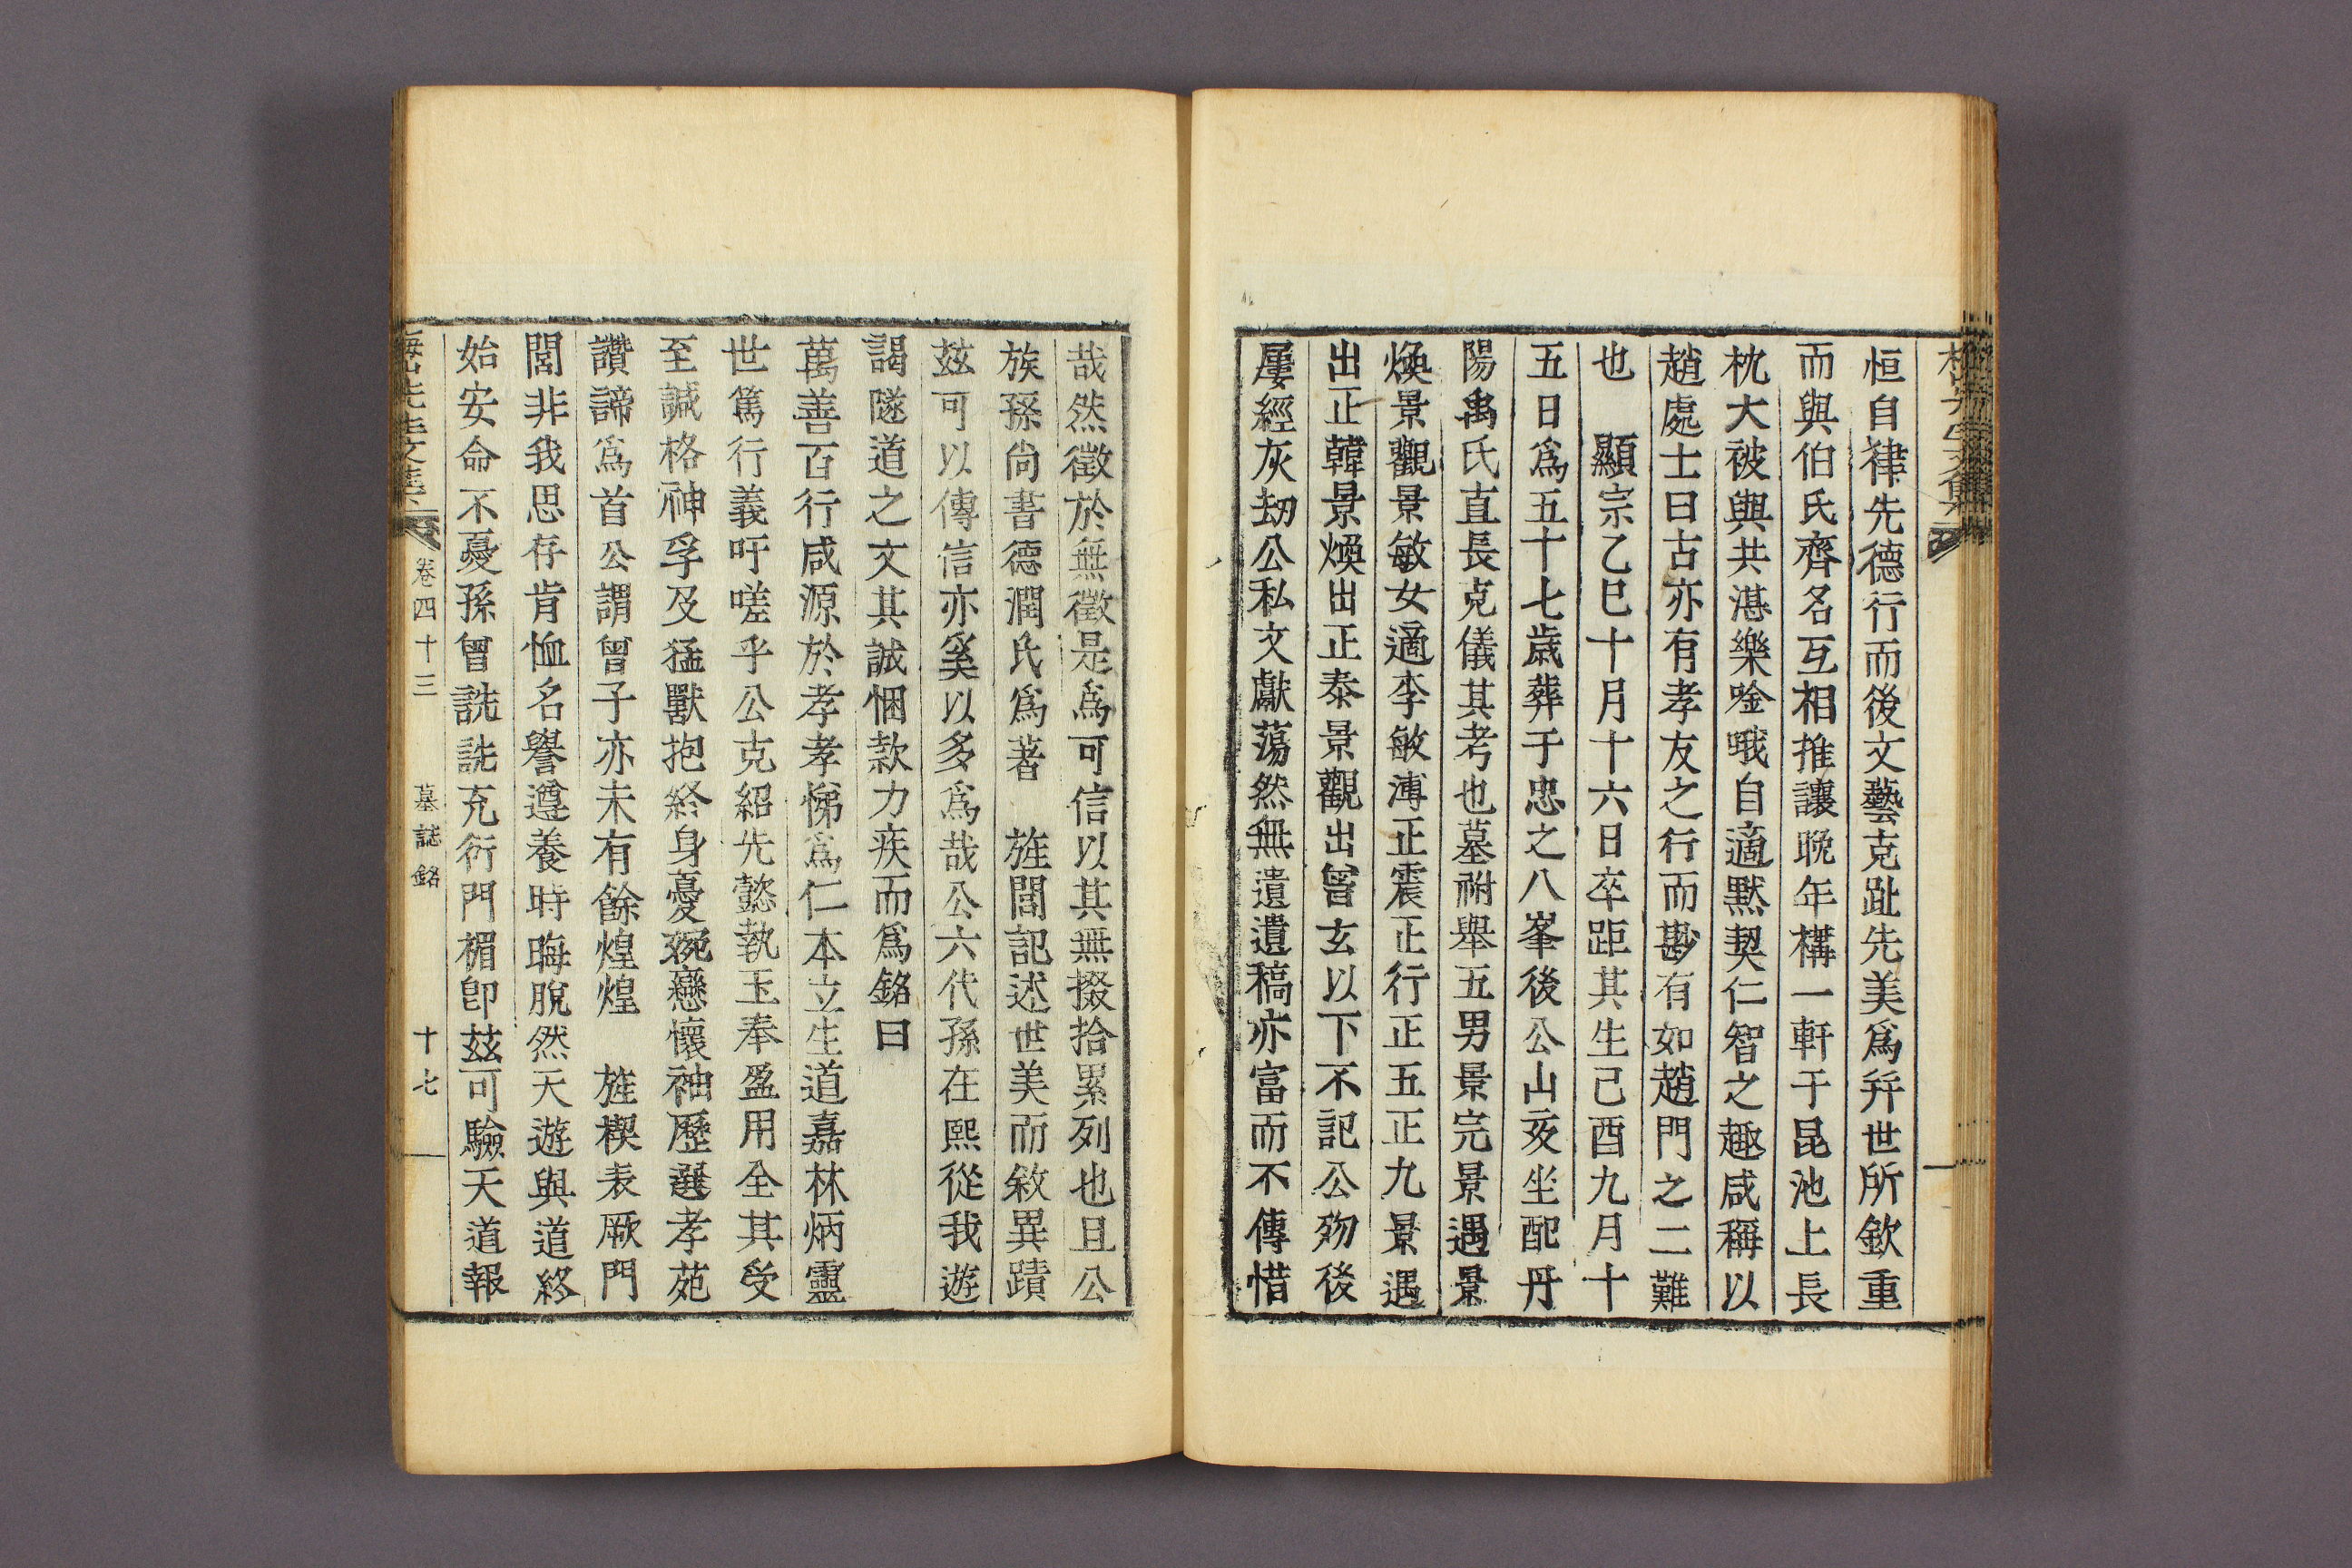 恒自律先德行而後文藝克趾先美爲幷世所欽重
而與伯氏齊名互相推讓晚年構一軒于昆池上長
枕大被與共湛樂唫哦自適默契仁智之趣咸稱以
趙處士曰古亦有孝友之行而尠有如趙門之二難
也 顯宗乙巳十月十六日卒距其生己酉九月十
五日爲五十七歲葬于忠之八峯後公山亥坐配丹
陽禹氏直長克儀其考也墓祔舉五男景完景遇景
煥景觀景敏女適李敏溥正震正行正五正九景遇
出正韓景煥出正泰景觀出曾玄以下不記公歿後
屢經灰劫公私文獻蕩然無遺遺稿亦富而不傳惜
哉然徵於無徵是爲可信以其無掇拾累列也且公
族孫尙書德潤氏爲著 旌閭記述世美而敘異蹟
玆可以傳信亦奚以多爲哉公六代孫在熙從我遊
謁隧道之文其誠悃款力疾而爲銘曰
萬善百行咸源於孝孝悌爲仁本立生道嘉林炳靈
世篤行義吁嗟乎公克紹先懿執玉奉盈用全其受
至諴格神孚及猛獸抱終身憂婉戀懷袖歷選孝苑
讚諦爲首公謂曾子亦未有餘煌煌 旌楔表厥門
閭非我思存肯恤名譽遵養時晦脫然天遊與道終
始安命不憂孫曾詵詵充衍門楣卽玆可驗天道報
卷四十三 墓誌銘 十七